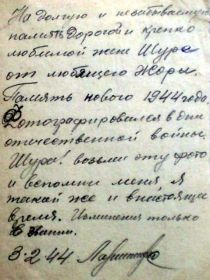 На долгую и незабываемую
память Дорогой и крепко
любимой жене Шуре
от любящего Жоры.
Память нового 1944 года.
Фотографировался в дни
отечественной войны.
Шура! возьми эту фото
и вспомни меня, я
такой же и внастоящ
время. Изменения только
в
3.2 44